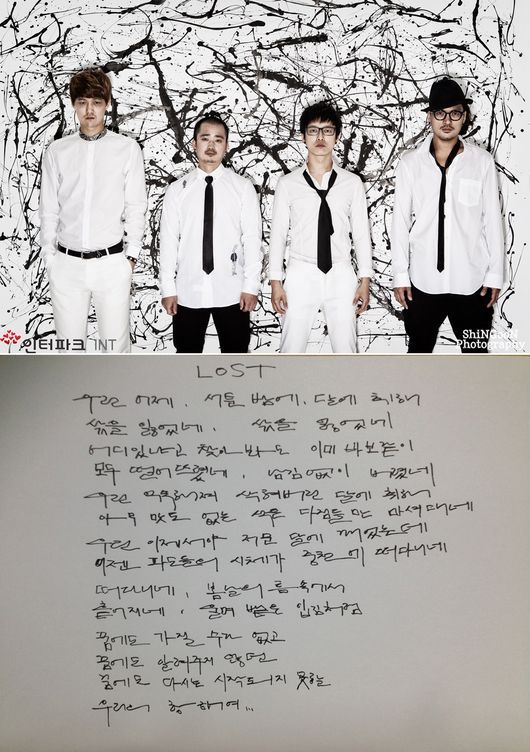 인터파크 INT
ShiNGooN
Photography
LOST
우린 어제, 서툰 밤에, 달에 취해
삯을 잃었네, 삯을 잃었네
어디있냐고 찾아봐도 이미 바보같이
모두 떨어뜨렸네, 남김없이 버렸네
우린 익숙해져 삭혀버린 달에 취해
아무 맛도 없는 식은 다짐들만 마셔대네
우린 이제서야 저문 달에 깨었는데
이젠 파도들의 시체가 중천에 떠다니네
떠다니네, 봄날의 틈속에서
흩어지네, 울며 뱉은 입김처럼
꿈에도 가질 수가 없고
꿈에도 알려주지 않던
꿈에도 다시는 시작되지 못할
우리의 항해여...